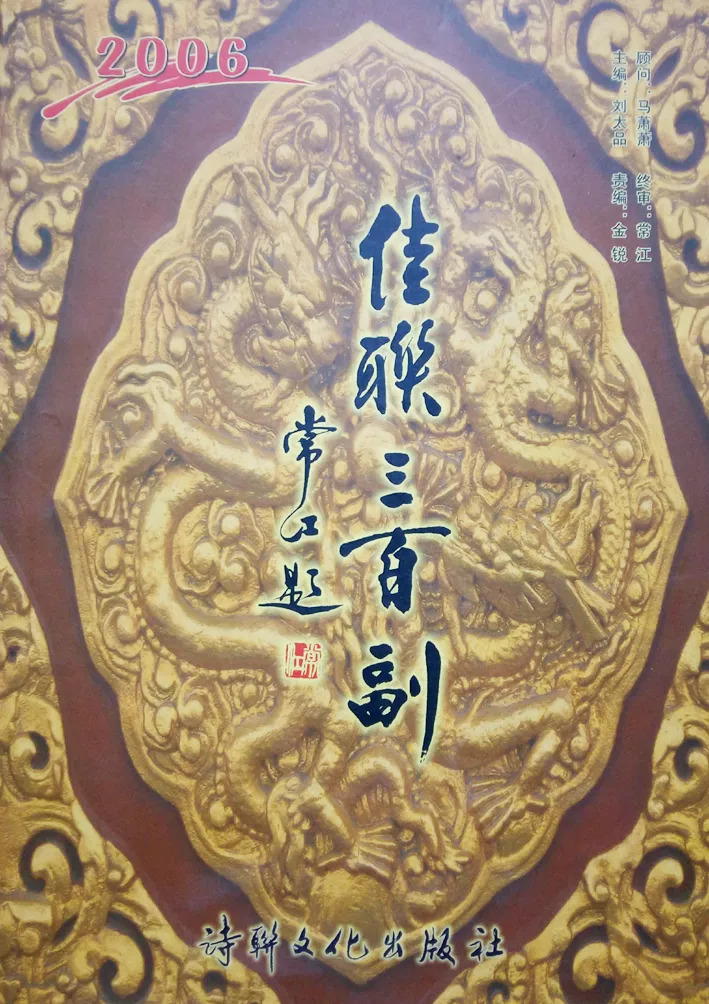 2006
顾问：马萧萧　终审：常江
主编：刘太品　责编：金锐
佳聯三百副
常江题
常江
诗聯文化出版社